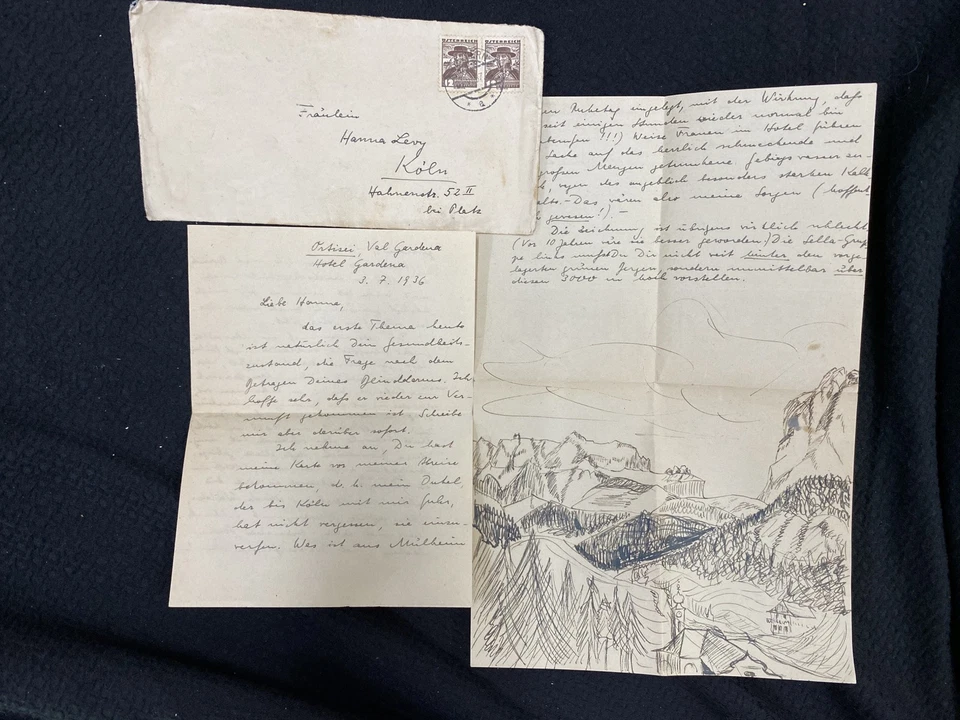 ÖSTERREICH ÖSTERREICH
Fräulein
Hanna Levy
Köln
Hahnenstr. 52 II
bei Platz
Ortisei, Val Gardena
Hotel Gardena
3. 7. 1936
Liebe Hanna,
das erste Thema heute
ist natürlich Dein Gesundheits-
zustand, die Frage nach dem
Betragen Deines Blinddarms. Ich
hoffe sehr, daß er wieder zur Ver-
nunft gekommen ist. Schreibe
mir aber darüber sofort.
Ich nehme an, Du hast
meine Karte von meiner Reise
bekommen, d. h. mein Onkel,
der bis Köln mit mir fuhr,
hat nicht vergessen, sie einzu-
werfen. Was ist aus Mülheim
en Ruhetag eingelegt, mit der Wirkung, daß
seit einigen Stunden wieder normal bin
!!!) Weise Frauen im Hotel führen
Sache auf das herrlich schmeckende und
großen Mengen getrunkene Gebirgswasser zu-
wegen des angeblich besonders starken Kalk
Das wären also meine Sorgen (hoffent
gewesen!). –
Die Zeichnung ist übrigens wirklich schlecht
(Vor 10 Jahren wäre sie besser geworden) Die Sella-Grup
pe links mußt Du Dir nicht weit hinter den vorge
lagerten grünen Bergen, sondern unmittelbar über
diesen 3000 m hoch vorstellen.